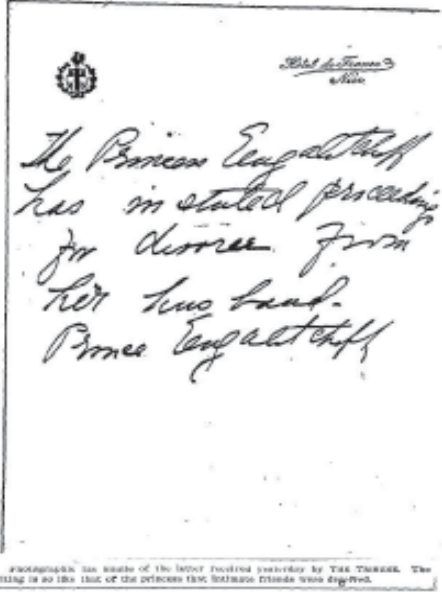 Hotel de France
Nice
The Princess Engalitcheff
has instituted proceedings
for divorce from
her husband.
Prince Engalitcheff
Photographic fac simile of the letter received yesterday by THE TRIBUNE. The
ting is so like that of the princess that intimate friends were deceived.